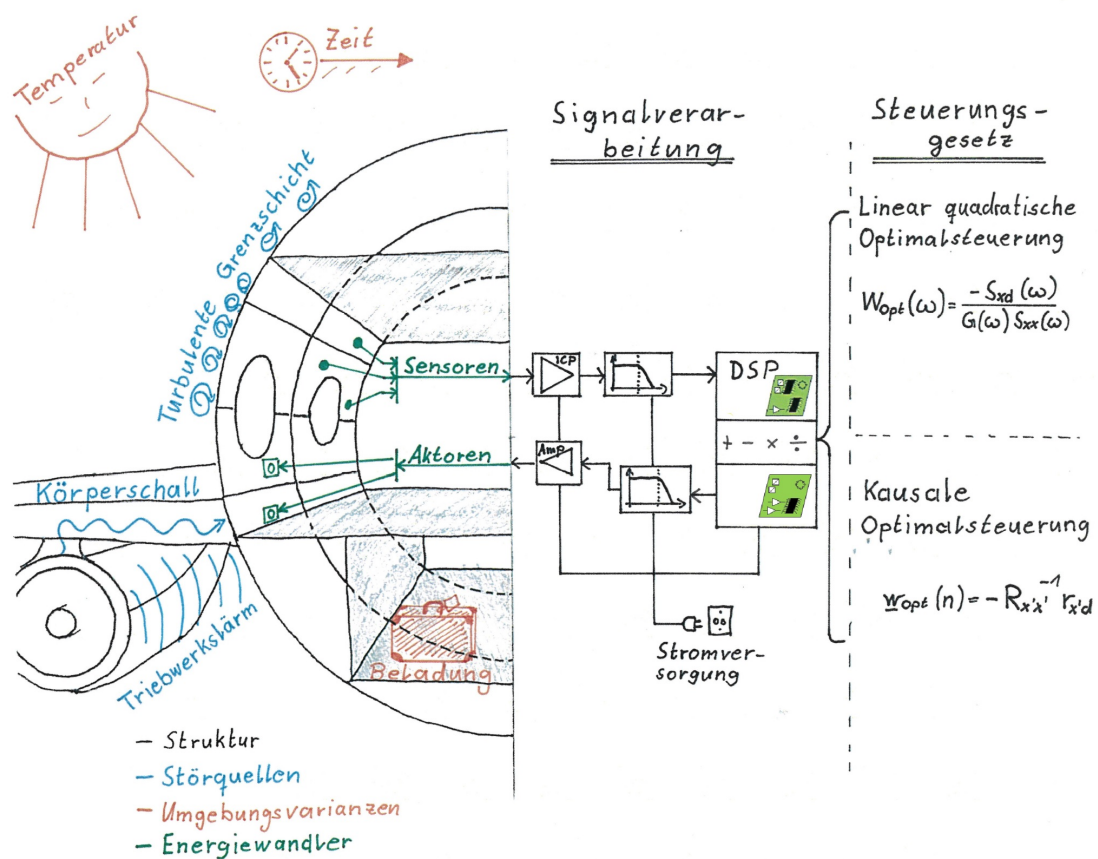 Temperatur
Zeit
Turbulente Grenzschicht
Körperschall
Triebwerkslärm
Beladung
Sensoren
Aktoren
— Struktur
— Störquellen
— Umgebungsvarianzen
— Energiewandler
Signalverar-
beitung
ICP
Amp
DSP
+ − × ÷
Stromver-
sorgung
Steuerungs-
gesetz
Linear quadratische
Optimalsteuerung
Wopt(ω) = −Sxd(ω) / G(ω) Sxx(ω)
Kausale
Optimalsteuerung
wopt(n) = − Rx'x'⁻¹ rx'd